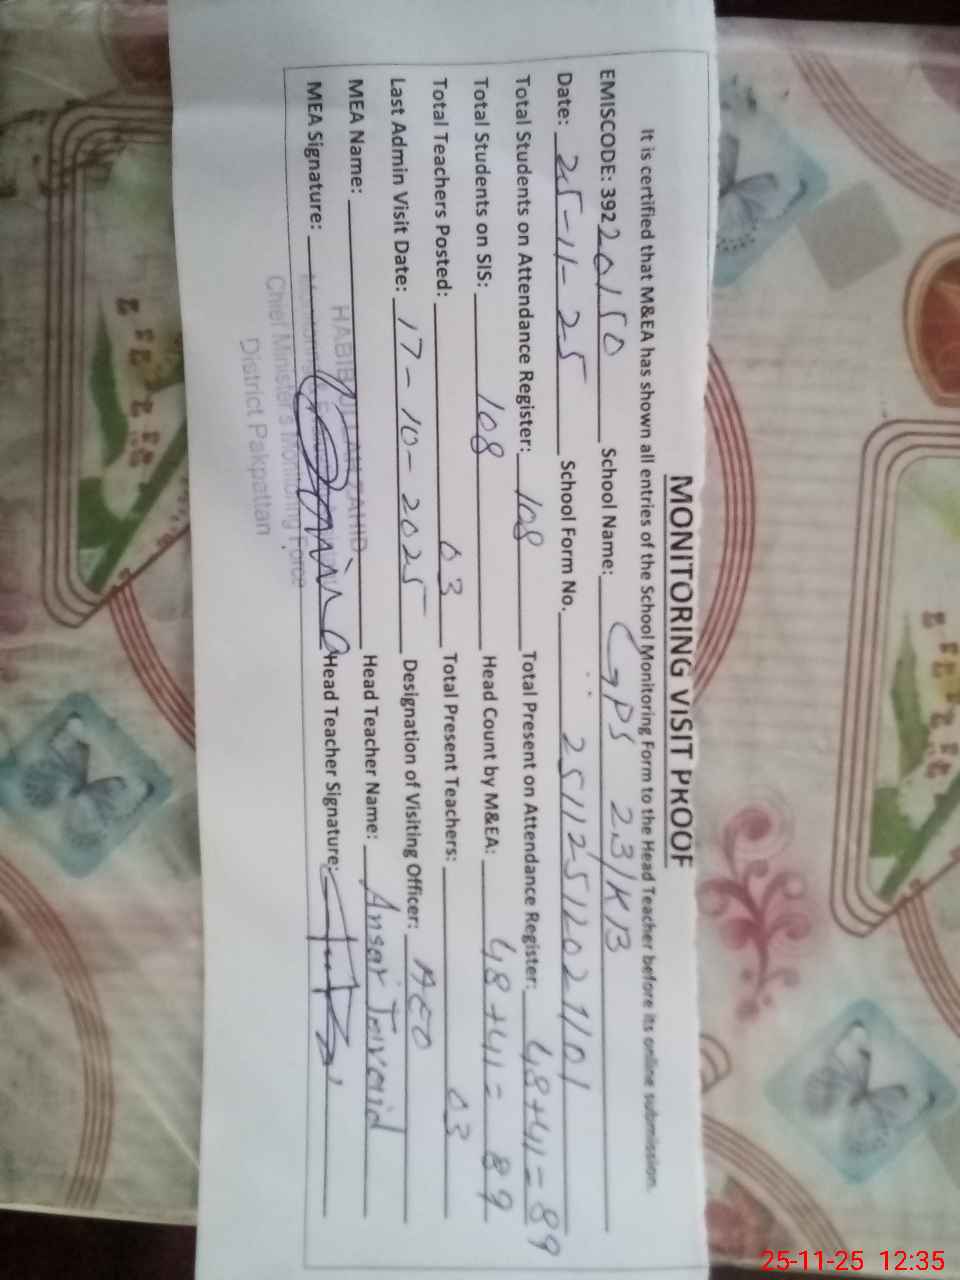 MONITORING VISIT PROOF
It is certified that M&EA has shown all entries of the School Monitoring Form to the Head Teacher before its online submission.
EMISCODE: 39220150 School Name: GPS 23/KB
Date: 25-11-25 School Form No. 25112512021101
Total Students on Attendance Register: 108 Total Present on Attendance Register: 48+41=89
Total Students on SIS: 108 Head Count by M&EA: 48+41=89
Total Teachers Posted: 03 Total Present Teachers: 03
Last Admin Visit Date: 17-10-2025 Designation of Visiting Officer: AEO
MEA Name: HABIB ULLAH ZAHID Head Teacher Name: Ansar Javaid
MEA Signature: Head Teacher Signature:
Chief Minister's Monitoring Force
District Pakpattan
25-11-25 12:35